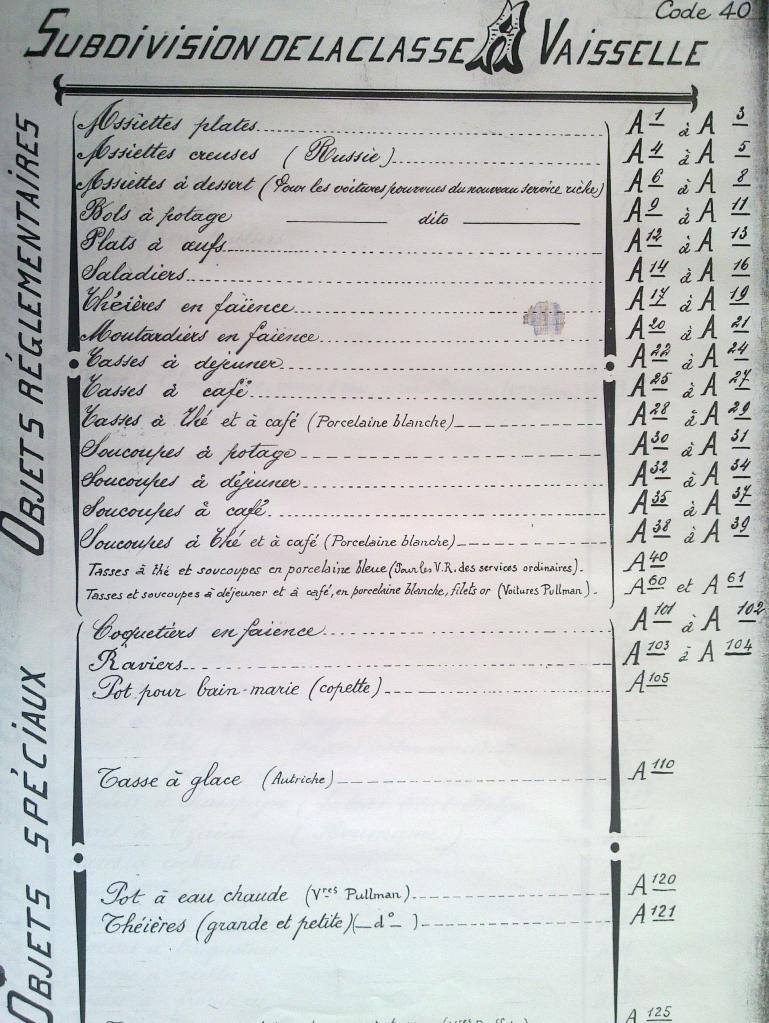 Code 40
SUBDIVISION DE LA CLASSE A VAISSELLE
OBJETS RÉGLEMENTAIRES
Assiettes plates A 1 à A 3
Assiettes creuses (Russie) A 4 à A 5
Assiettes à dessert (Pour les voitures pourvues du nouveau service riche) A 6 à A 8
Bols à potage dito A 9 à A 11
Plats à œufs A 12 à A 13
Saladiers A 14 à A 16
Théières en faïence A 17 à A 19
Moutardiers en faïence A 20 à A 21
Tasses à déjeuner A 22 à A 24
Tasses à café A 25 à A 27
Tasses à thé et à café (Porcelaine blanche) A 28 à A 29
Soucoupes à potage A 30 à A 31
Soucoupes à déjeuner A 32 à A 34
Soucoupes à café A 35 à A 37
Soucoupes à thé et à café (Porcelaine blanche) A 38 à A 39
Tasses à thé et soucoupes en porcelaine bleue (Pour les V.R. des services ordinaires). A 40
Tasses et soucoupes à déjeuner et à café, en porcelaine blanche, filets or (Voitures Pullman). A 60 et A 61
OBJETS SPÉCIAUX
Coquetiers en faïence A 101 à A 102
Raviers A 103 à A 104
Pot pour bain-marie (copette) A 105
Tasse à glace (Autriche) A 110
Pot à eau chaude (Vres Pullman) A 120
Théières (grande et petite) (d°) A 121
A 125